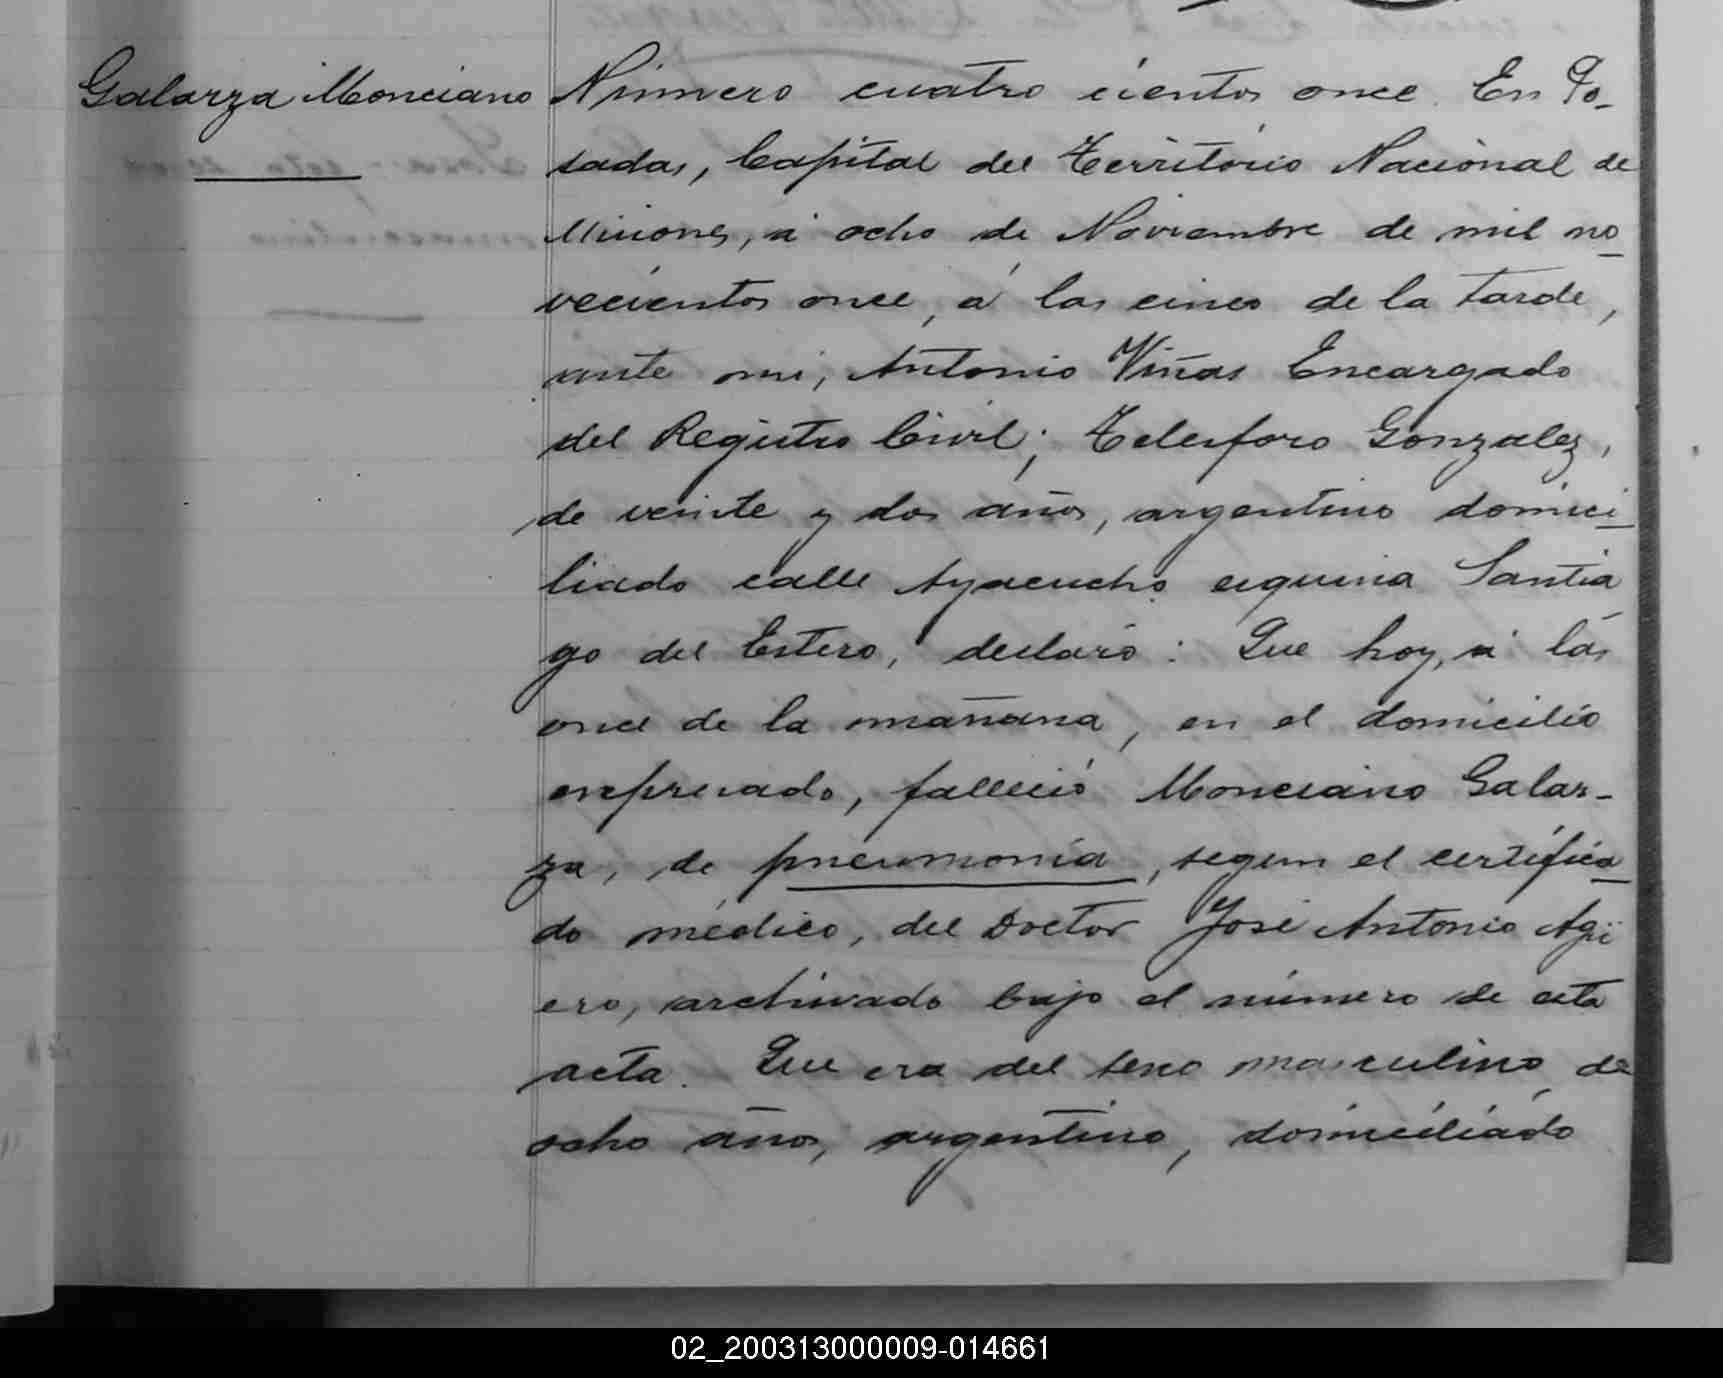 Galarza Monciano
Número cuatro cientos once. En Po-
sadas, Capital del Territorio Nacional de
Misiones, á ocho de Noviembre de mil no
vecientos once, á las cinco de la tarde,
ante mi, Antonio Viñas Encargado
del Registro Civil; Telesforo Gonzalez,
de veinte y dos años, argentino domici-
liado calle Ayacucho esquina Santia
go del Estero, declaró: Que hoy, á las
once de la mañana, en el domicilio
expresado, falleció Monciano Galar-
za, de pneumonía, segun el certifica
do médico, del Doctor José Antonio Agü
ero, archivado bajo el número de esta
acta. Que era del sexo masculino, de
ocho años, argentino, domiciliado
02_200313000009-014661